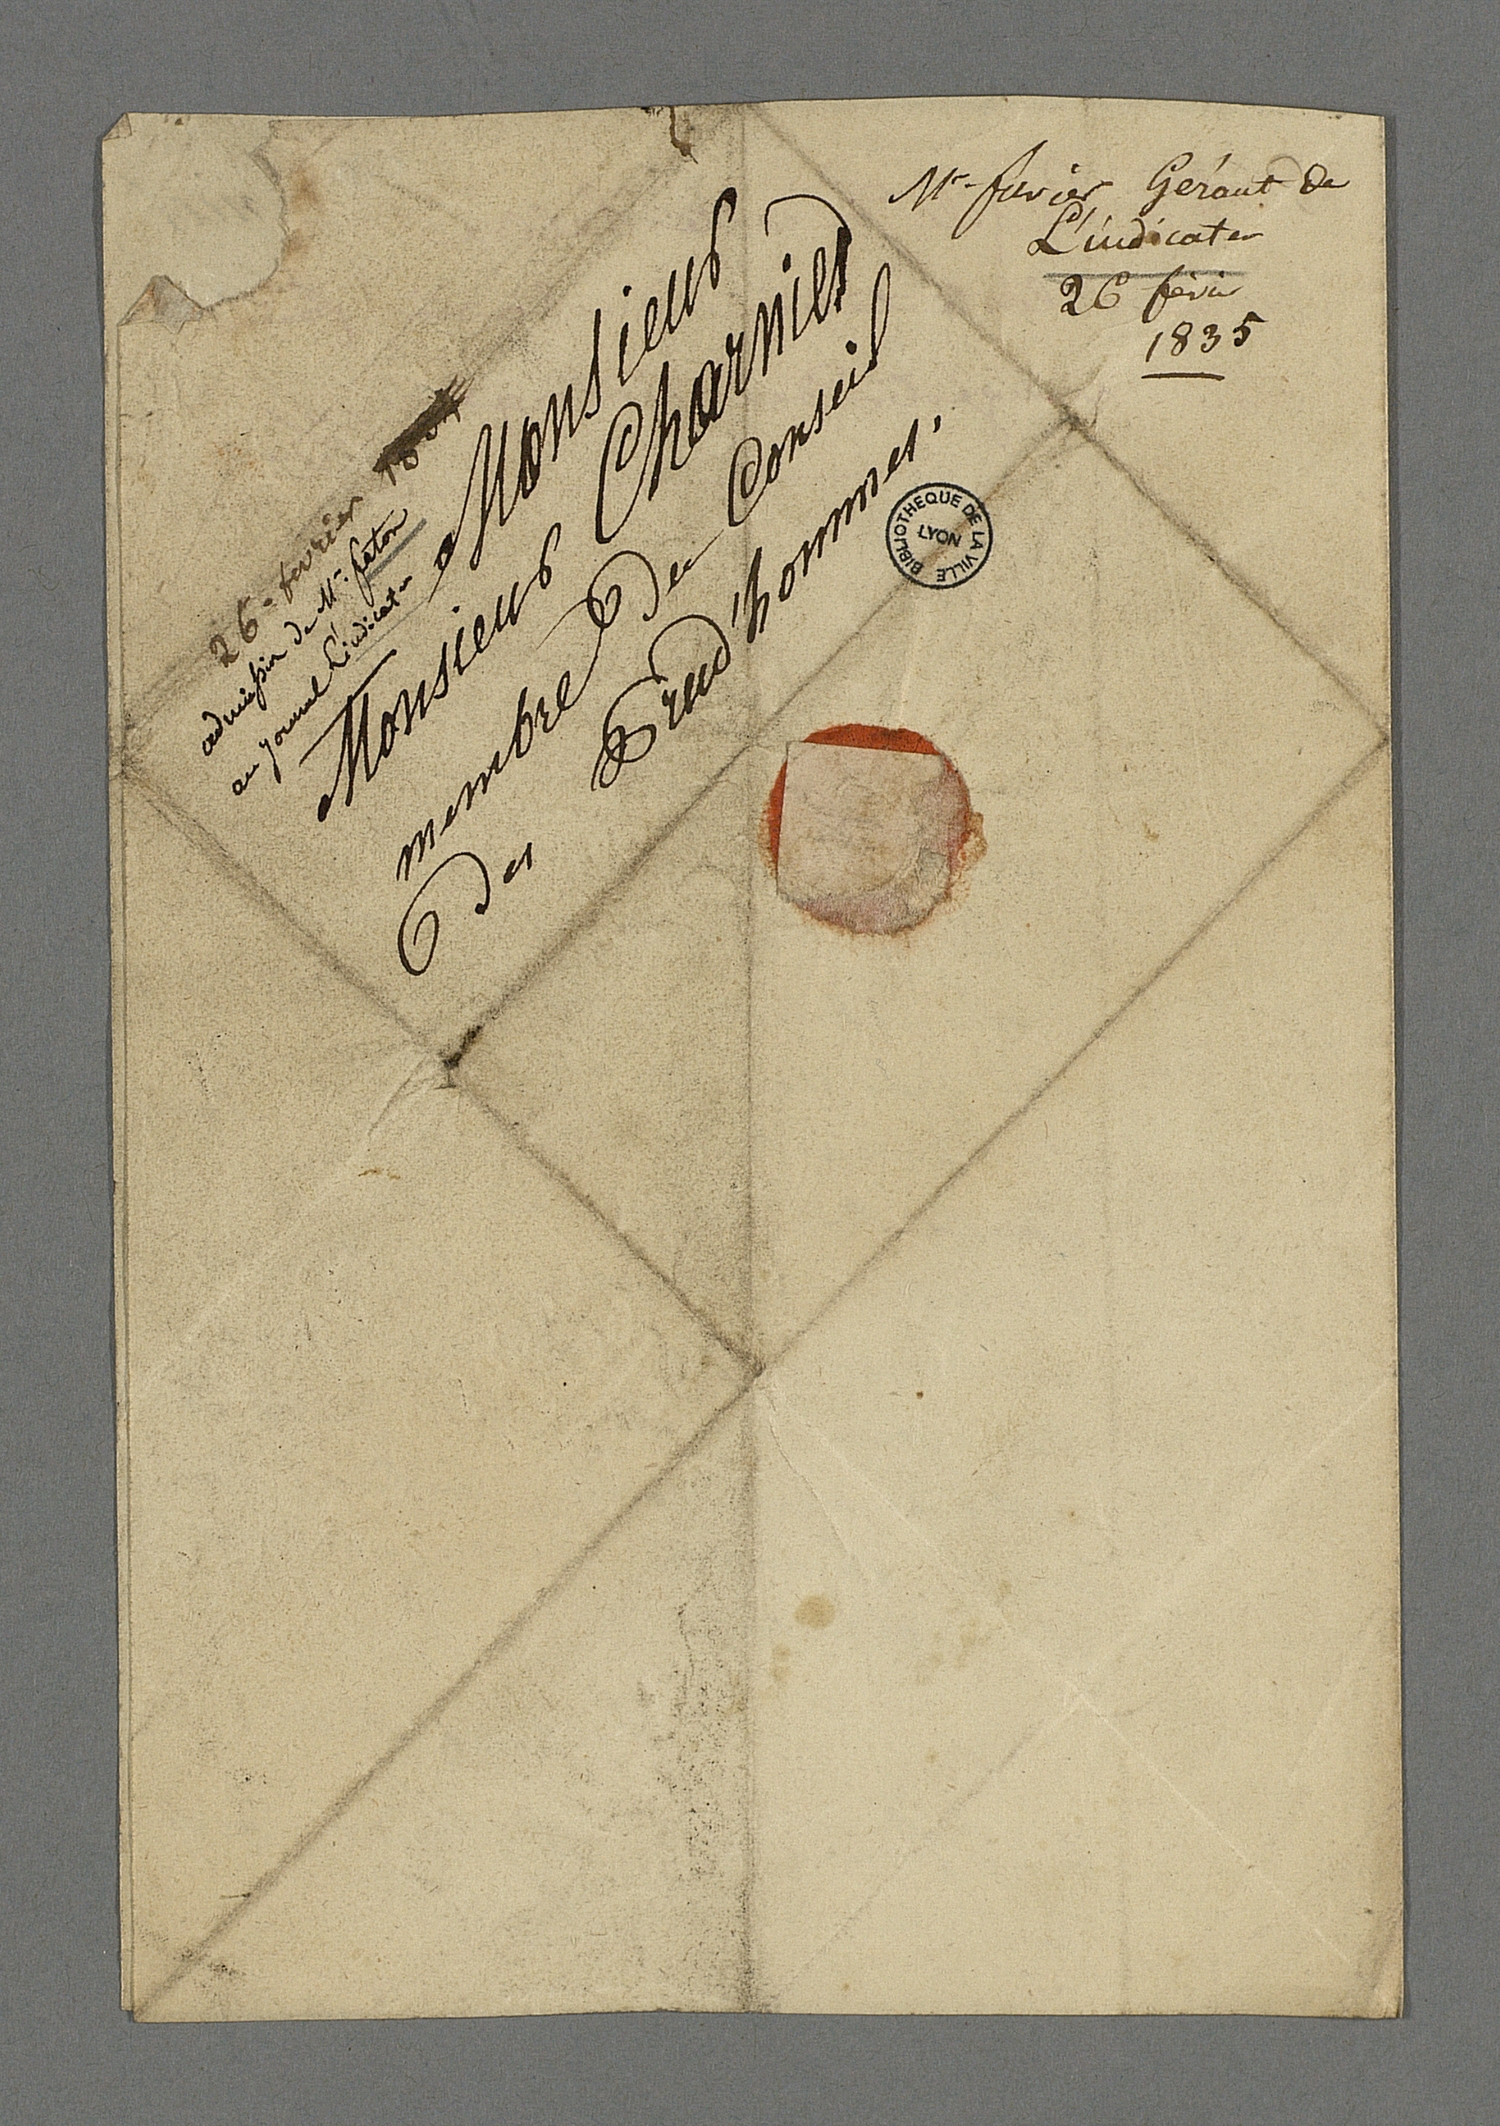 Mr. favier Gérant de
L'indicateur
26 févrir
1835
26 - fevrier
admission de Mr. faton
au journal L'indicateur
Monsieur
Monsieur Charnier
membre Du Conseil
Des Prud'hommes.
BIBLIOTHEQUE DE LA VILLE
LYON